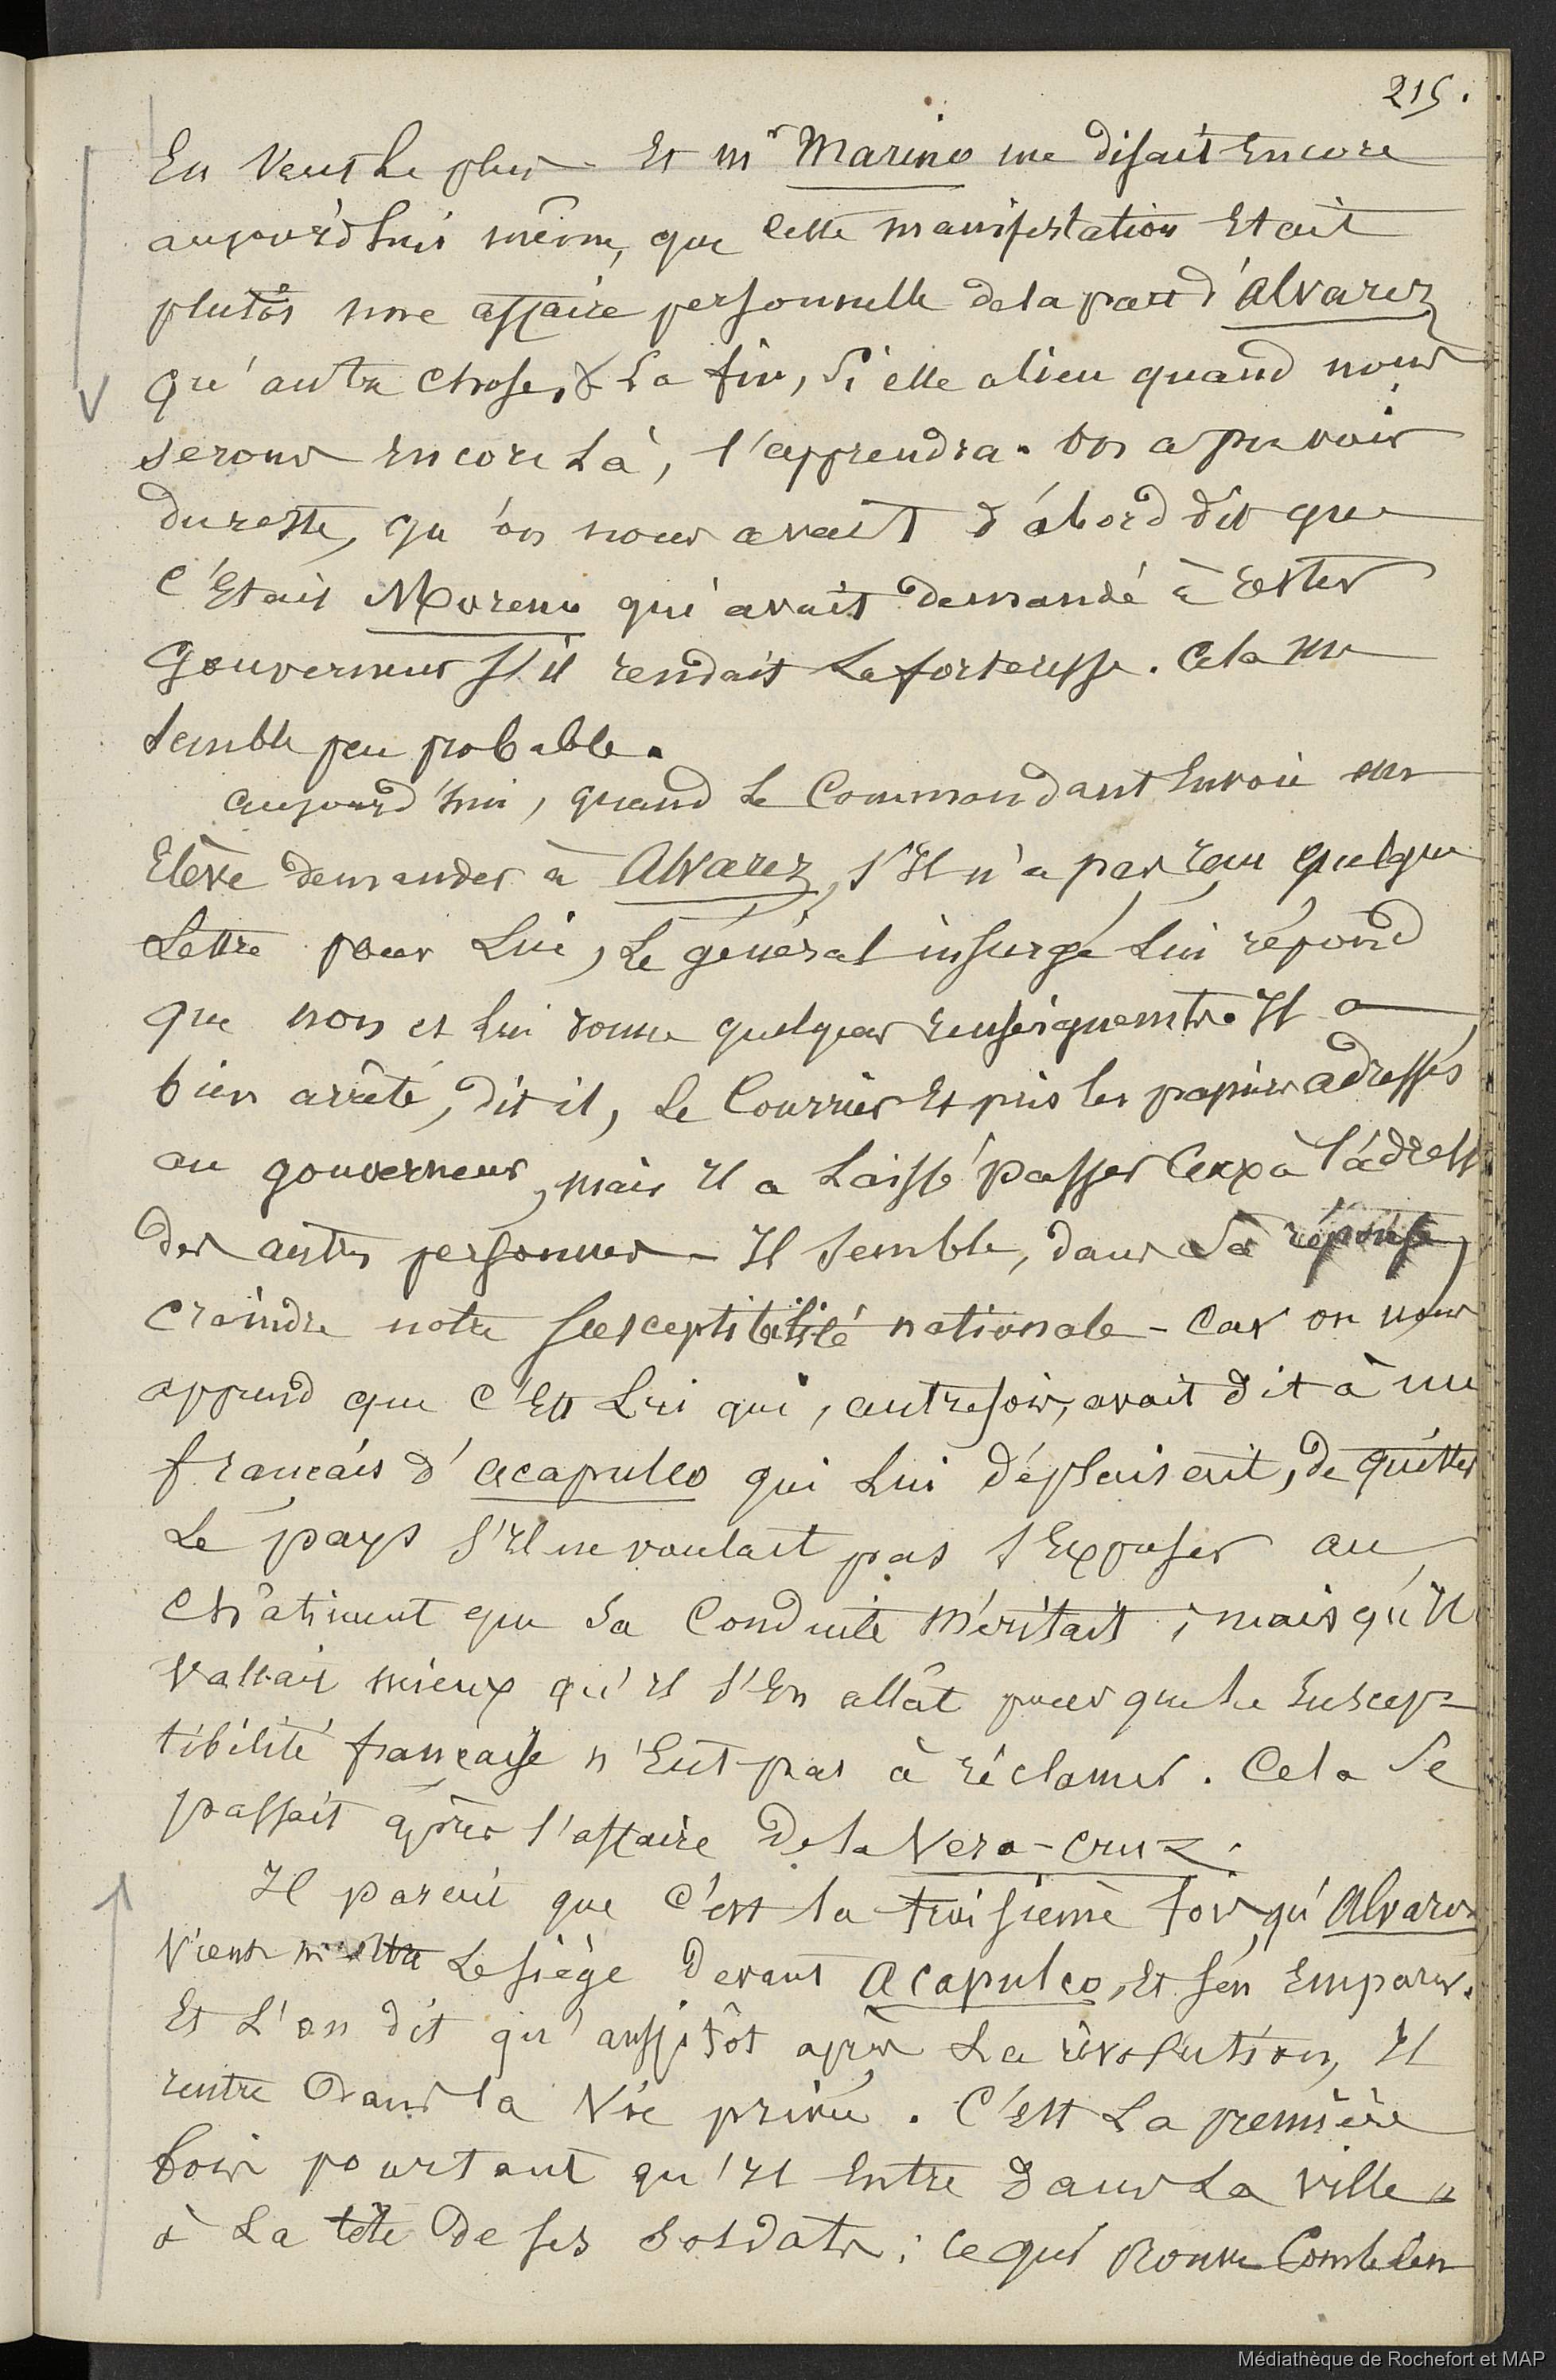 215.
En veut le plus - Et mr Marino me disait Encore
aujourd'hui même, que Cette manifestation Etait
plutôt une affaire personnelle de la part d'Alvarez
qu'autre Chose, & La fin, Si elle a lieu quand nous
serons encore Là, l'apprendra. On a pu voir
du reste, qu'on nous avait d'abord dit que
C'Etait Moreno qui avait demandé à rester
Gouverneur S'il rendait La forteresse. Cela me
Semble peu probable.
aujourd'hui, quand Le Commandant Envoie un
Elève demander à Alvarez, s'Il n'a pas reçu quelque
Lettre pour Lui, Le général insurgé Lui répond
que non et Lui donne quelques renseignemts. Il a
bien arrêté, dit il, Le Courrier Et pris les papiers adressés
au gouverneur, mais Il a Laissé passer Ceux à l'adresse
des autres personnes - Il Semble, dans Sa réponse,
craindre notre Susceptibilité nationale - Car on nous
apprend que C'Est Lui qui, autrefois, avait dit à un
français d'acapulco qui Lui déplaisait, de quitter
Le pays S'Il ne voulait pas s'Exposer au
Châtiment que Sa Conduite méritait ; mais qu'Il
valait mieux qu'Il S'En allât pour que La Suscep-
tibilité française n'Eut pas à réclamer. Cela Se
passait après l'affaire De la Vera-Cruz.
Il parait que C'est la troisième fois qu'Alvarez
Vient mettre Le siège Devant Acapulco, Et s'en Emparer.
Et L'on dit qu'aussitôt après La révolution, Il
rentre Dans la Vie privée. C'Est La première
fois pourtant qu'Il Entre Dans La ville "
à La tête De ses Soldats ; Ce qui prouve Combien
Médiathèque de Rochefort et MAP